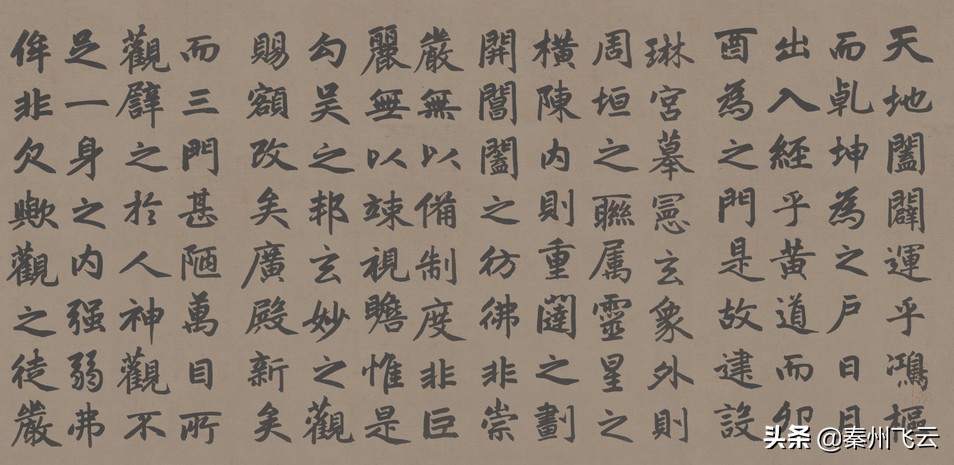 天地闔闢運乎鴻樞
而乹坤為之戶日月
出入經乎黃道而卯
酉為之門是故建設
琳宮摹憲玄象外則
周垣之聯属靈星之
橫陳内則重闥之劃
開閶闔之彷彿非崇
嚴無以備制度非巨
麗無以竦視瞻惟是
勾吴之邦玄妙之觀
賜額改矣廣殿新矣
而三門甚陋萬目所
觀譬之於人神觀不
足一身之内强弱弗
侔非欠歟觀之徒嚴
头条 @秦州飞云